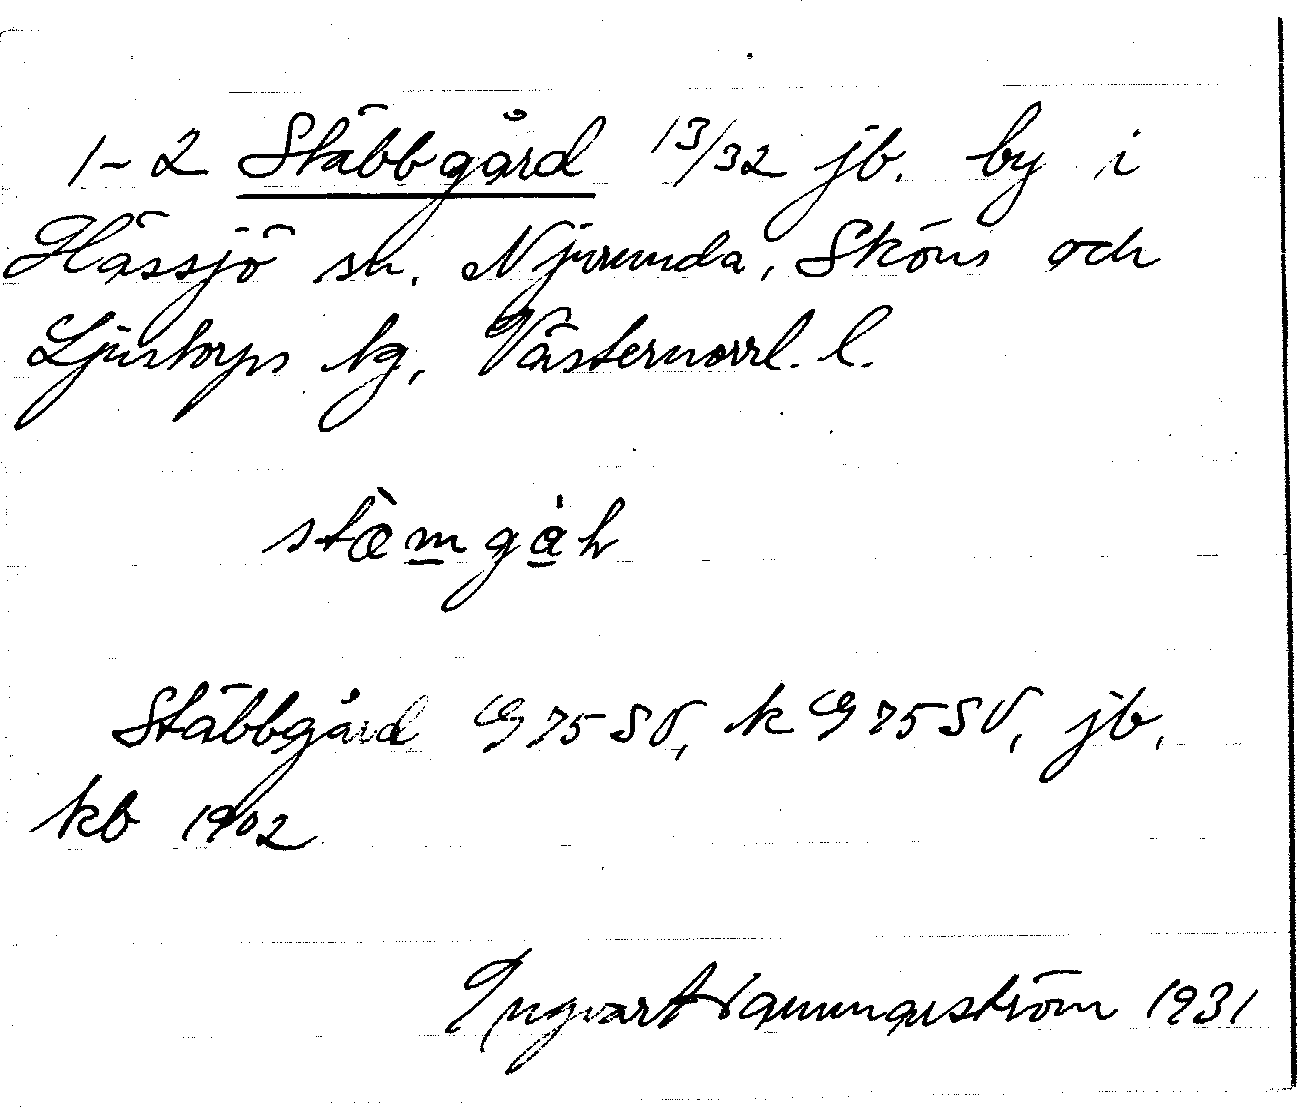 1-2 Stäbbgård 13/32 jb. by i
Hässjö sn. Njurunda, Sköns och
Ljustorps tg, Västernorrl. l.
stæ̀mgàh
Stäbbgård G 75 SV, k G 75 SV, jb,
kb 1902
Ingvart 1931